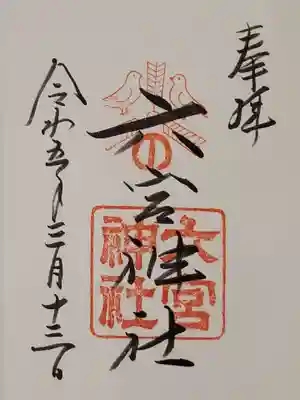 奉拝
六宮神社
六の宮
神社
令和五年三月十三日